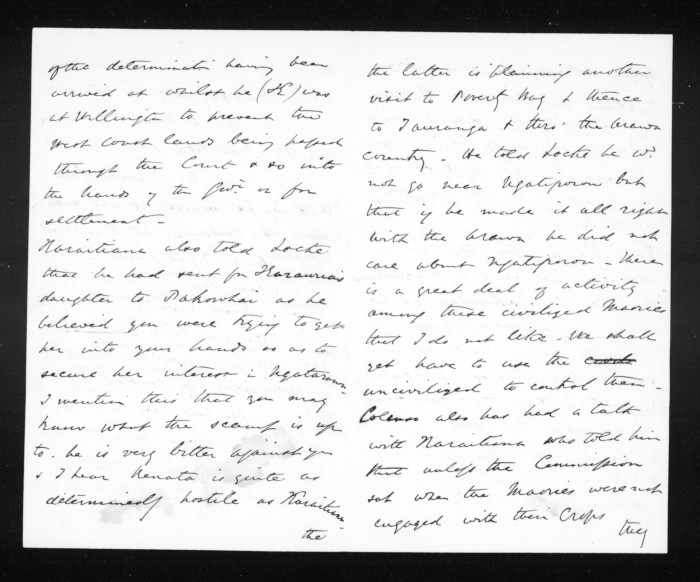 of the determinatn having been
arrived at whilst he (H) was
at Wellington to prevent the
West Coast lands being passed
through the Court & so into
the hands of the Govt. or for
settlement -
Karaitiana also told Locke
that he had sent for Karauria's
daughter to Pakowhai as he
believed you were trying to get
her into your hands so as to
secure her interest in
I mention this that you may
know what the scamp is up
to. he is very bitter against you
& I hear Renata is quite as
determinedly hostile as Karaitiana -
the
the latter is planning another
visit to Poverty Bay & thence
to Tauranga & thro' the Arawa
country - He told Locke he wd.
not go near Ngatiporou but
that if he made it all right
with the Arawa he did not
care about Ngatiporou - There
is a great deal of activity
among these civilized Maories
that I do not like - We shall
yet have to use the
uncivilized to control them -
Colenso also has had a talk
with Karaitiana who told him
that unless the Commission
sat when the Maories were not
engaged with their Crops
they